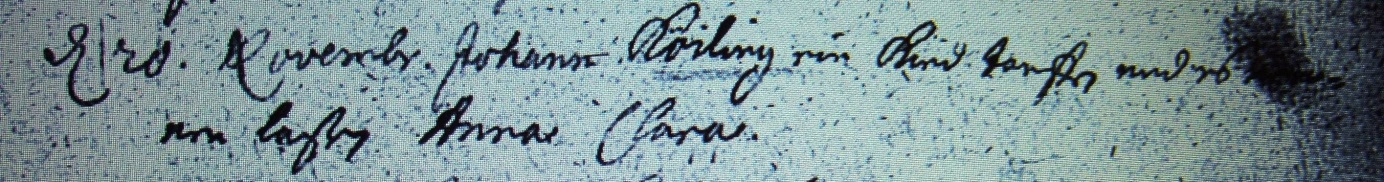 d 28. Novembr. Johann Köiling ein Kind tauffen und es
nen laßen Anna Clara.